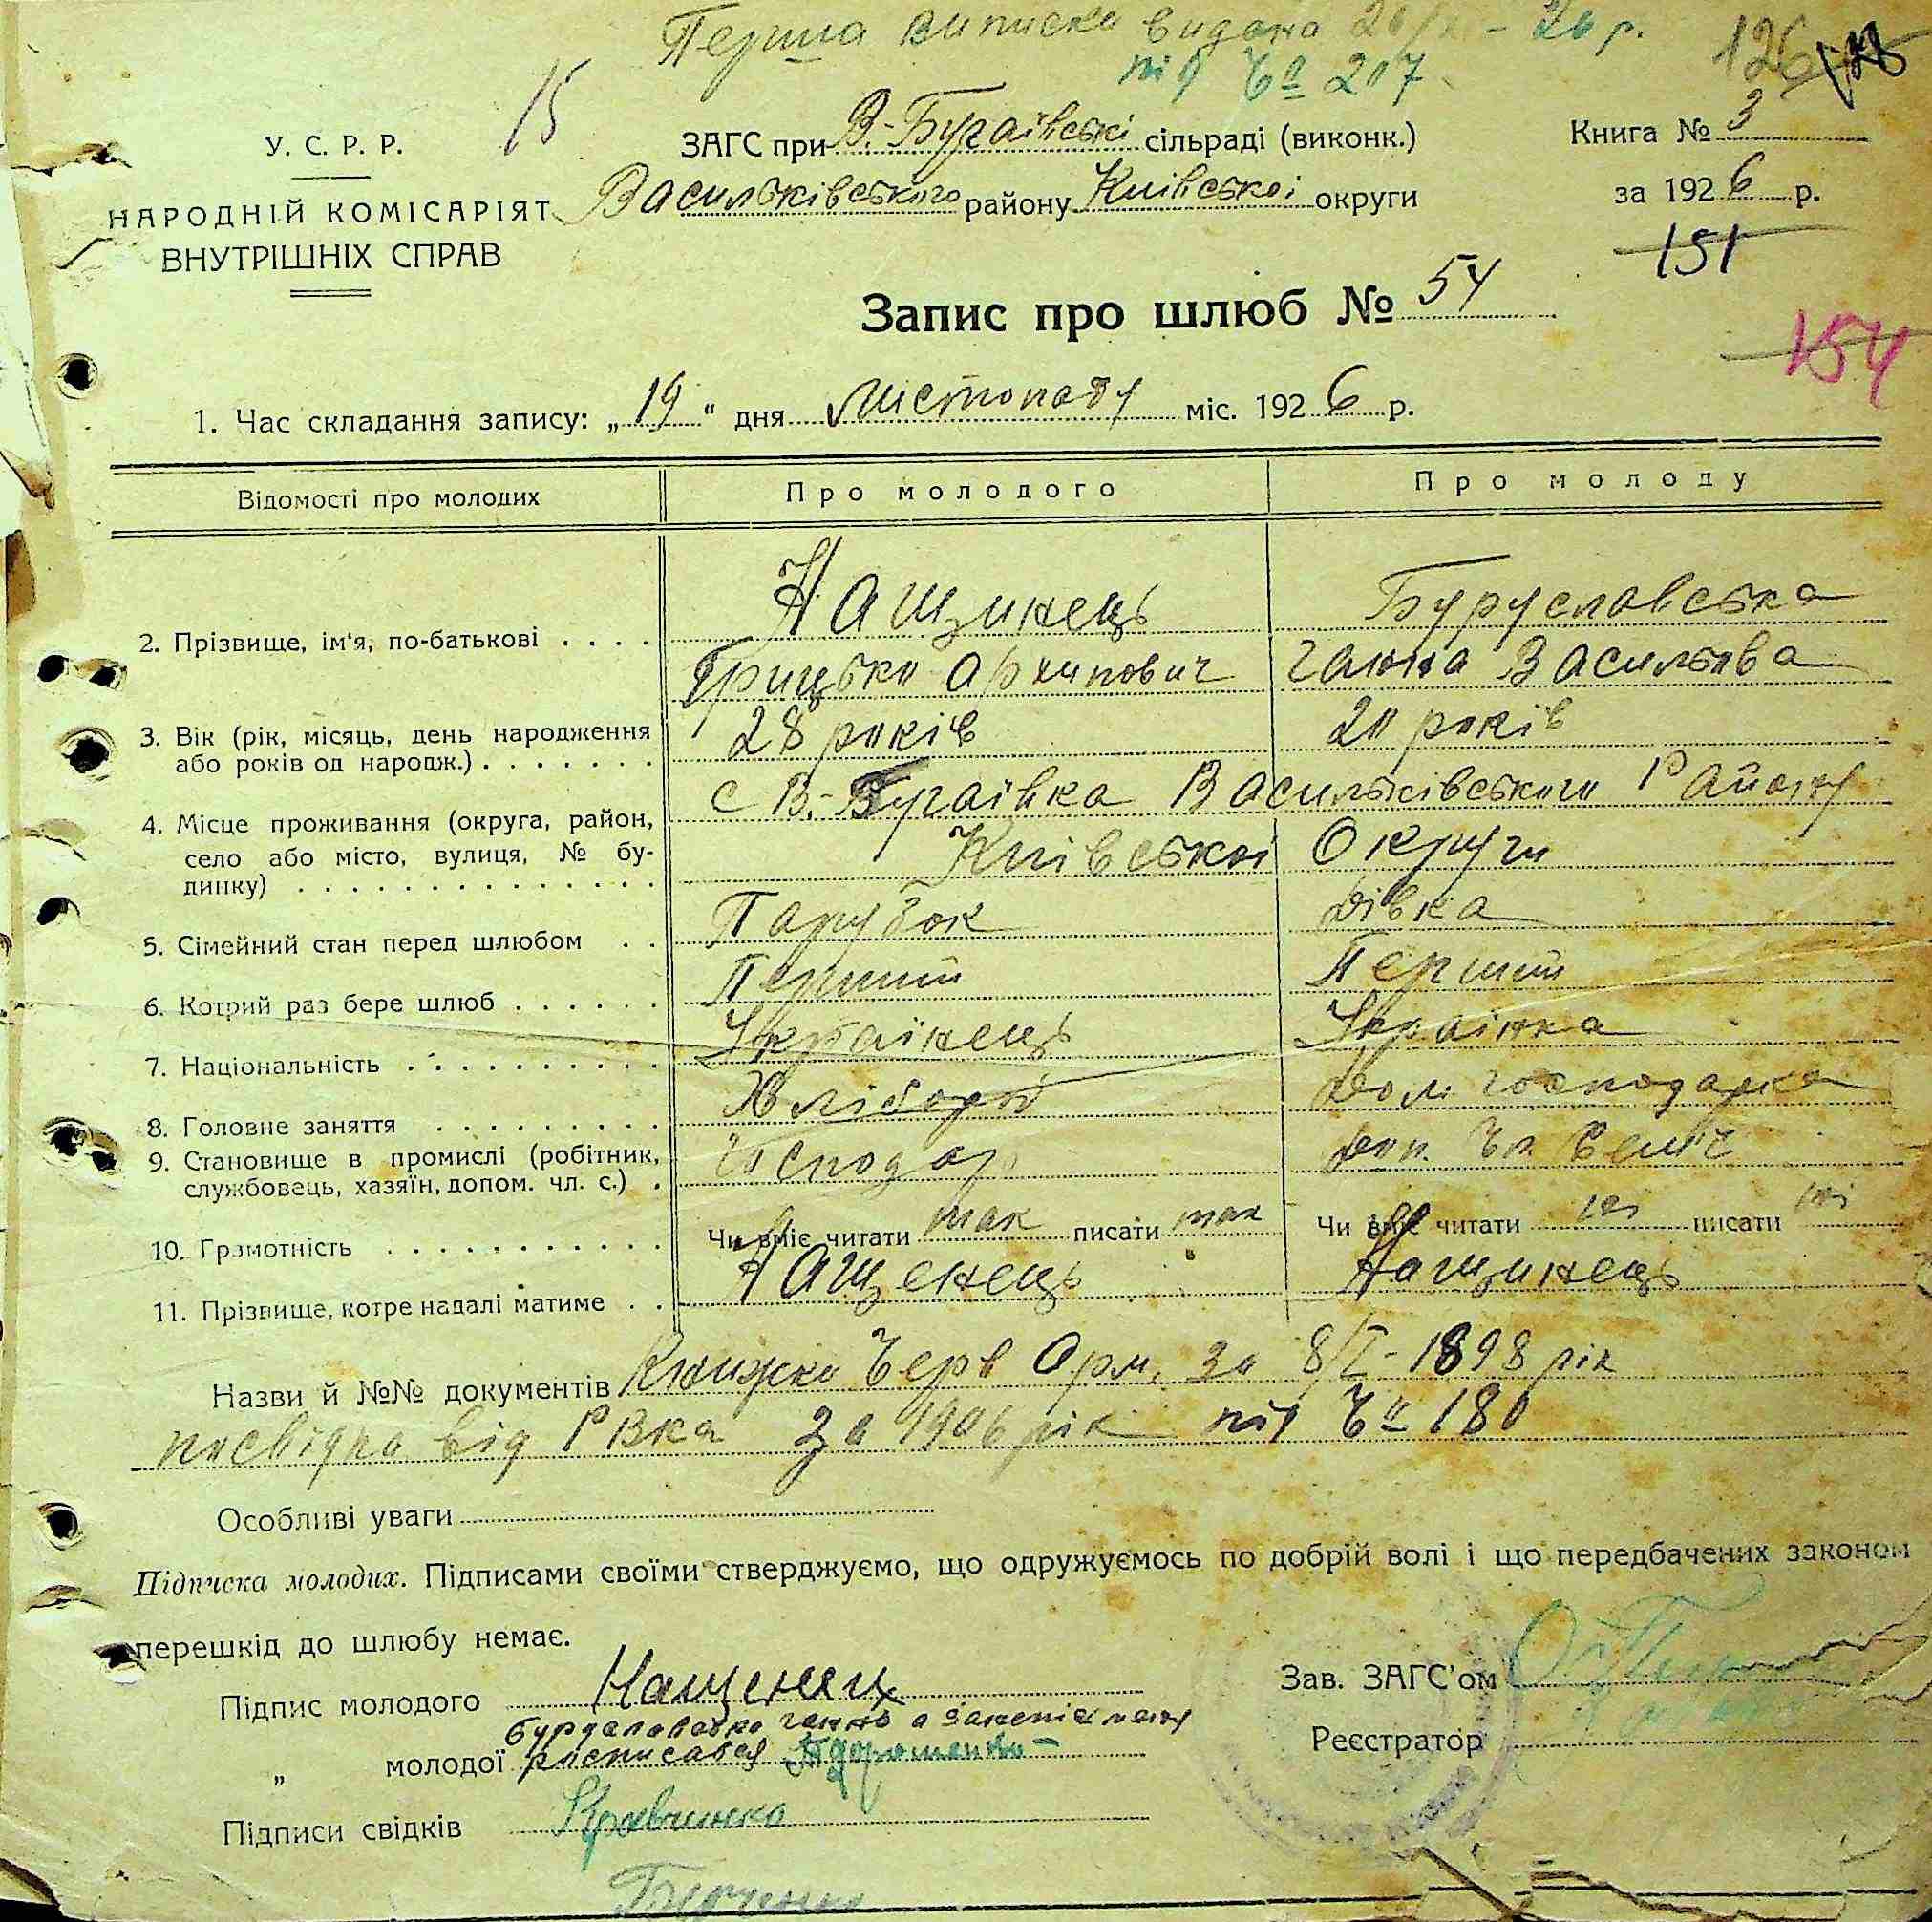 Перша виписка видана 20/ - 26 р.
під Ч<u>о</u> 207
126
15
У. С. Р. Р.
НАРОДНІЙ КОМІСАРІЯТ
ВНУТРІШНІХ СПРАВ
ЗАГС при В.-Бугаївські сільраді (виконк.)
Васильківського району Київської округи
Книга № 3
за 1926 р.
151
154
Запис про шлюб № 54
1. Час складання запису: „19“ дня Листопаду міс. 1926 р.
Відомості про молодих Про молодого Про молоду
2. Прізвище, ім'я, по-батькові . . . . Нащинець Буруславська
Грицько Архипович Ганна Васильова
3. Вік (рік, місяць, день народження 28 років 20 років
або років од народж.) . . . . . . .
4. Місце проживання (округа, район, с В.-Бугаївка Васильківського Району
село або місто, вулиця, № бу- Київської Округи
динку) . . . . . . . . . . . . . .
5. Сімейний стан перед шлюбом . . Парубок Дівка
6. Котрий раз бере шлюб . . . . . . Перший Перший
7. Національність . . . . . . . . . . Українець Українка
8. Головне заняття . . . . . . . . . Хлібороб Дом. господарка
9. Становище в промислі (робітник, Господар доп. чл. семїї
службовець, хазяїн, допом. чл. с.) .
10. Грамотність . . . . . . . . . . . Чи вміє читати так писати так Чи вміє читати ні писати ні
11. Прізвище, котре надалі матиме . . Нащенець Нащинець
Назви й №№ документів Книжка Черв Арм. за 8/I-1898 рік
посвідка від РВКа за 1906 рік під Ч<u>о</u> 180
Особливі уваги
Підписка молодих. Підписами своїми стверджуємо, що одружуємось по добрій волі і що передбачених законом
перешкід до шлюбу немає.
Підпис молодого Нащенец
Ганна а
„ молодої росписався
Підписи свідків Кравченко
Зав. ЗАГС'ом
Реєстратор